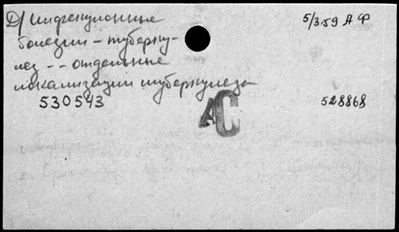 Д/ Инфекционные
болезни – туберку-
лез -- отдельные
локализации туберкулеза
5/III 59 АФ
530543
528868
АС